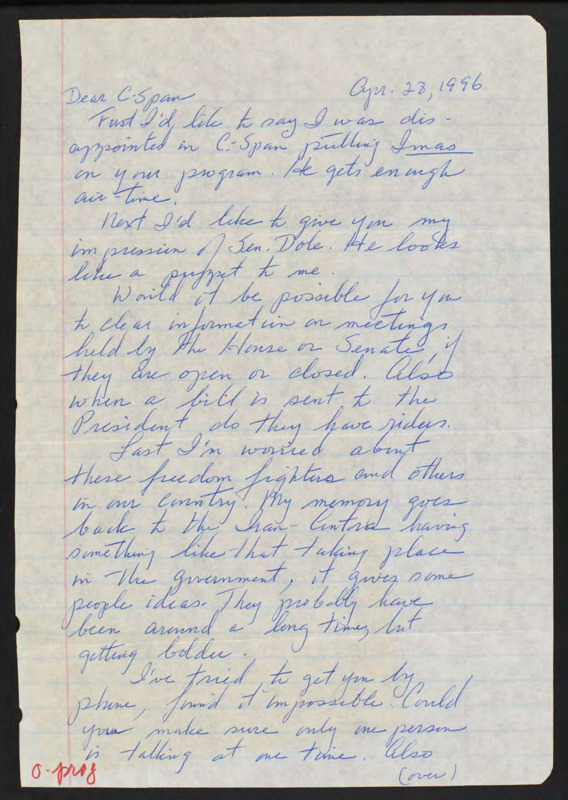 Apr. 28, 1996
Dear C-Span
First I'd like to say I was dis-
appointed in C-Span putting Imas
on your program. He gets enough
air-time.
Next I'd like to give you my
impression of Sen. Dole. He looks
like a puppet to me.
Would it be possible for you
to clear information on meetings
held by the House or Senate, if
they are open or closed. Also
when a bill is sent to the
President do they have riders.
Last I'm worried about
these freedom fighters and others
in our country. My memory goes
back to the Iran-Contra having
something like that taking place
in the government, it gives some
people ideas. They probably have
been around a long time, but
getting bolder.
I've tried to get you by
phone, found it impossible. Could
you make sure only one person
is talking at one time. Also
(over)
O-prog